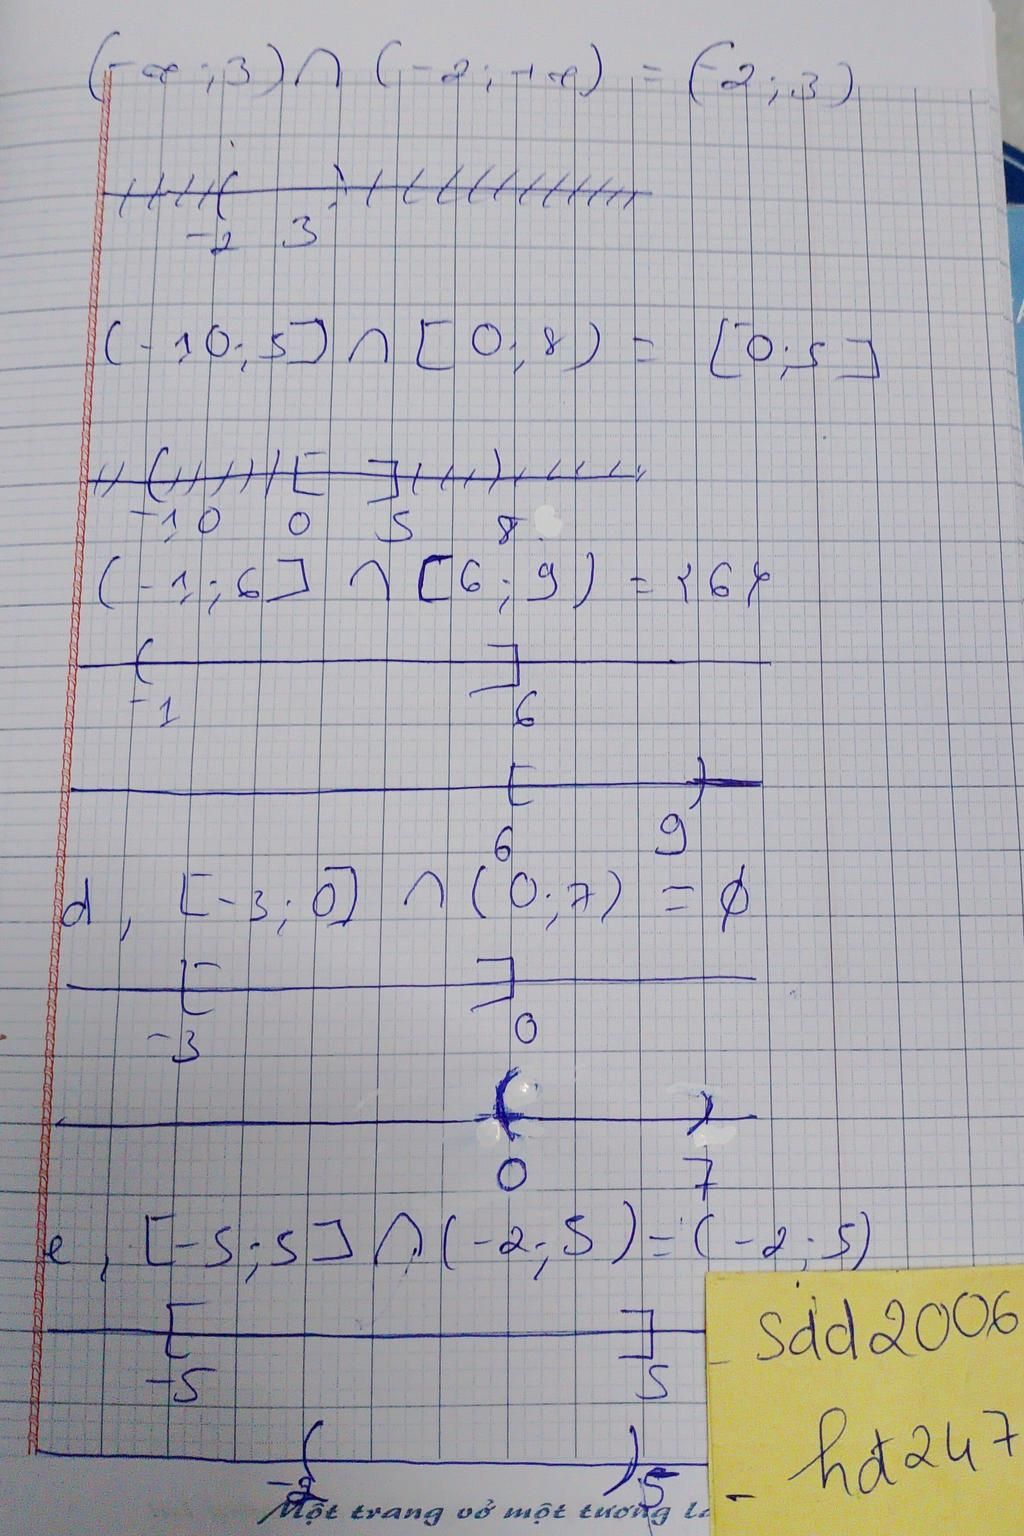 (-∞;3) ∩ (-2;+∞) = (-2;3)
-2 3
(-10;5] ∩ [0;8) = [0;5]
-10 0 5 8
(-1;6] ∩ [6;9) = {6}
-1 6
6 9
d, [-3;0] ∩ (0;7) = ∅
-3 0
0 7
e, [-5;5] ∩ (-2;5) = (-2;5)
-5 5
-2 5
- sdd2006
- hđ247
Một trang vở một tương